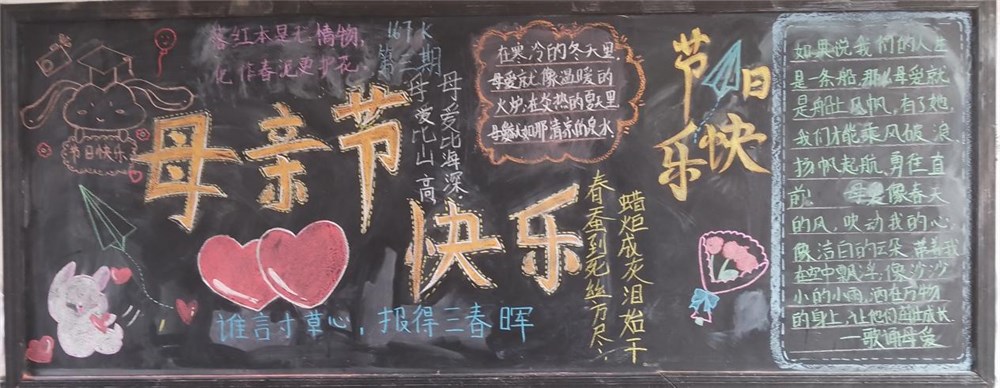 落红本是无情物,
化作春泥更护花
167K
第三期
节日快乐
母亲节
快乐
母爱比山高
母爱比海深
在寒冷的冬天里,
母爱就像温暖的
火炉,在炎热的夏天里
母爱如那清凉的泉水
谁言寸草心，报得三春晖
春蚕到死丝方尽,
蜡炬成灰泪始干
节日
快乐
如果说我们的人生
是一条船,那么母爱就
是船上风帆,有了她,
我们才能乘风破浪
扬帆起航,勇往直
前! 母爱像春天
的风,吹动我的心,
像洁白的云朵,带着我
在空中飘荡,像沙沙
小的小雨,洒在万物
的身上,让他们茁壮成长
—歌诵母爱